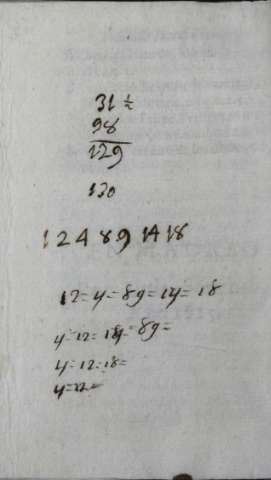 31 1/2
98
129
130
1 2 4 8 9 14 18
12=4=89=14=18
4=12=18=89=
4=12=18=
4=12=